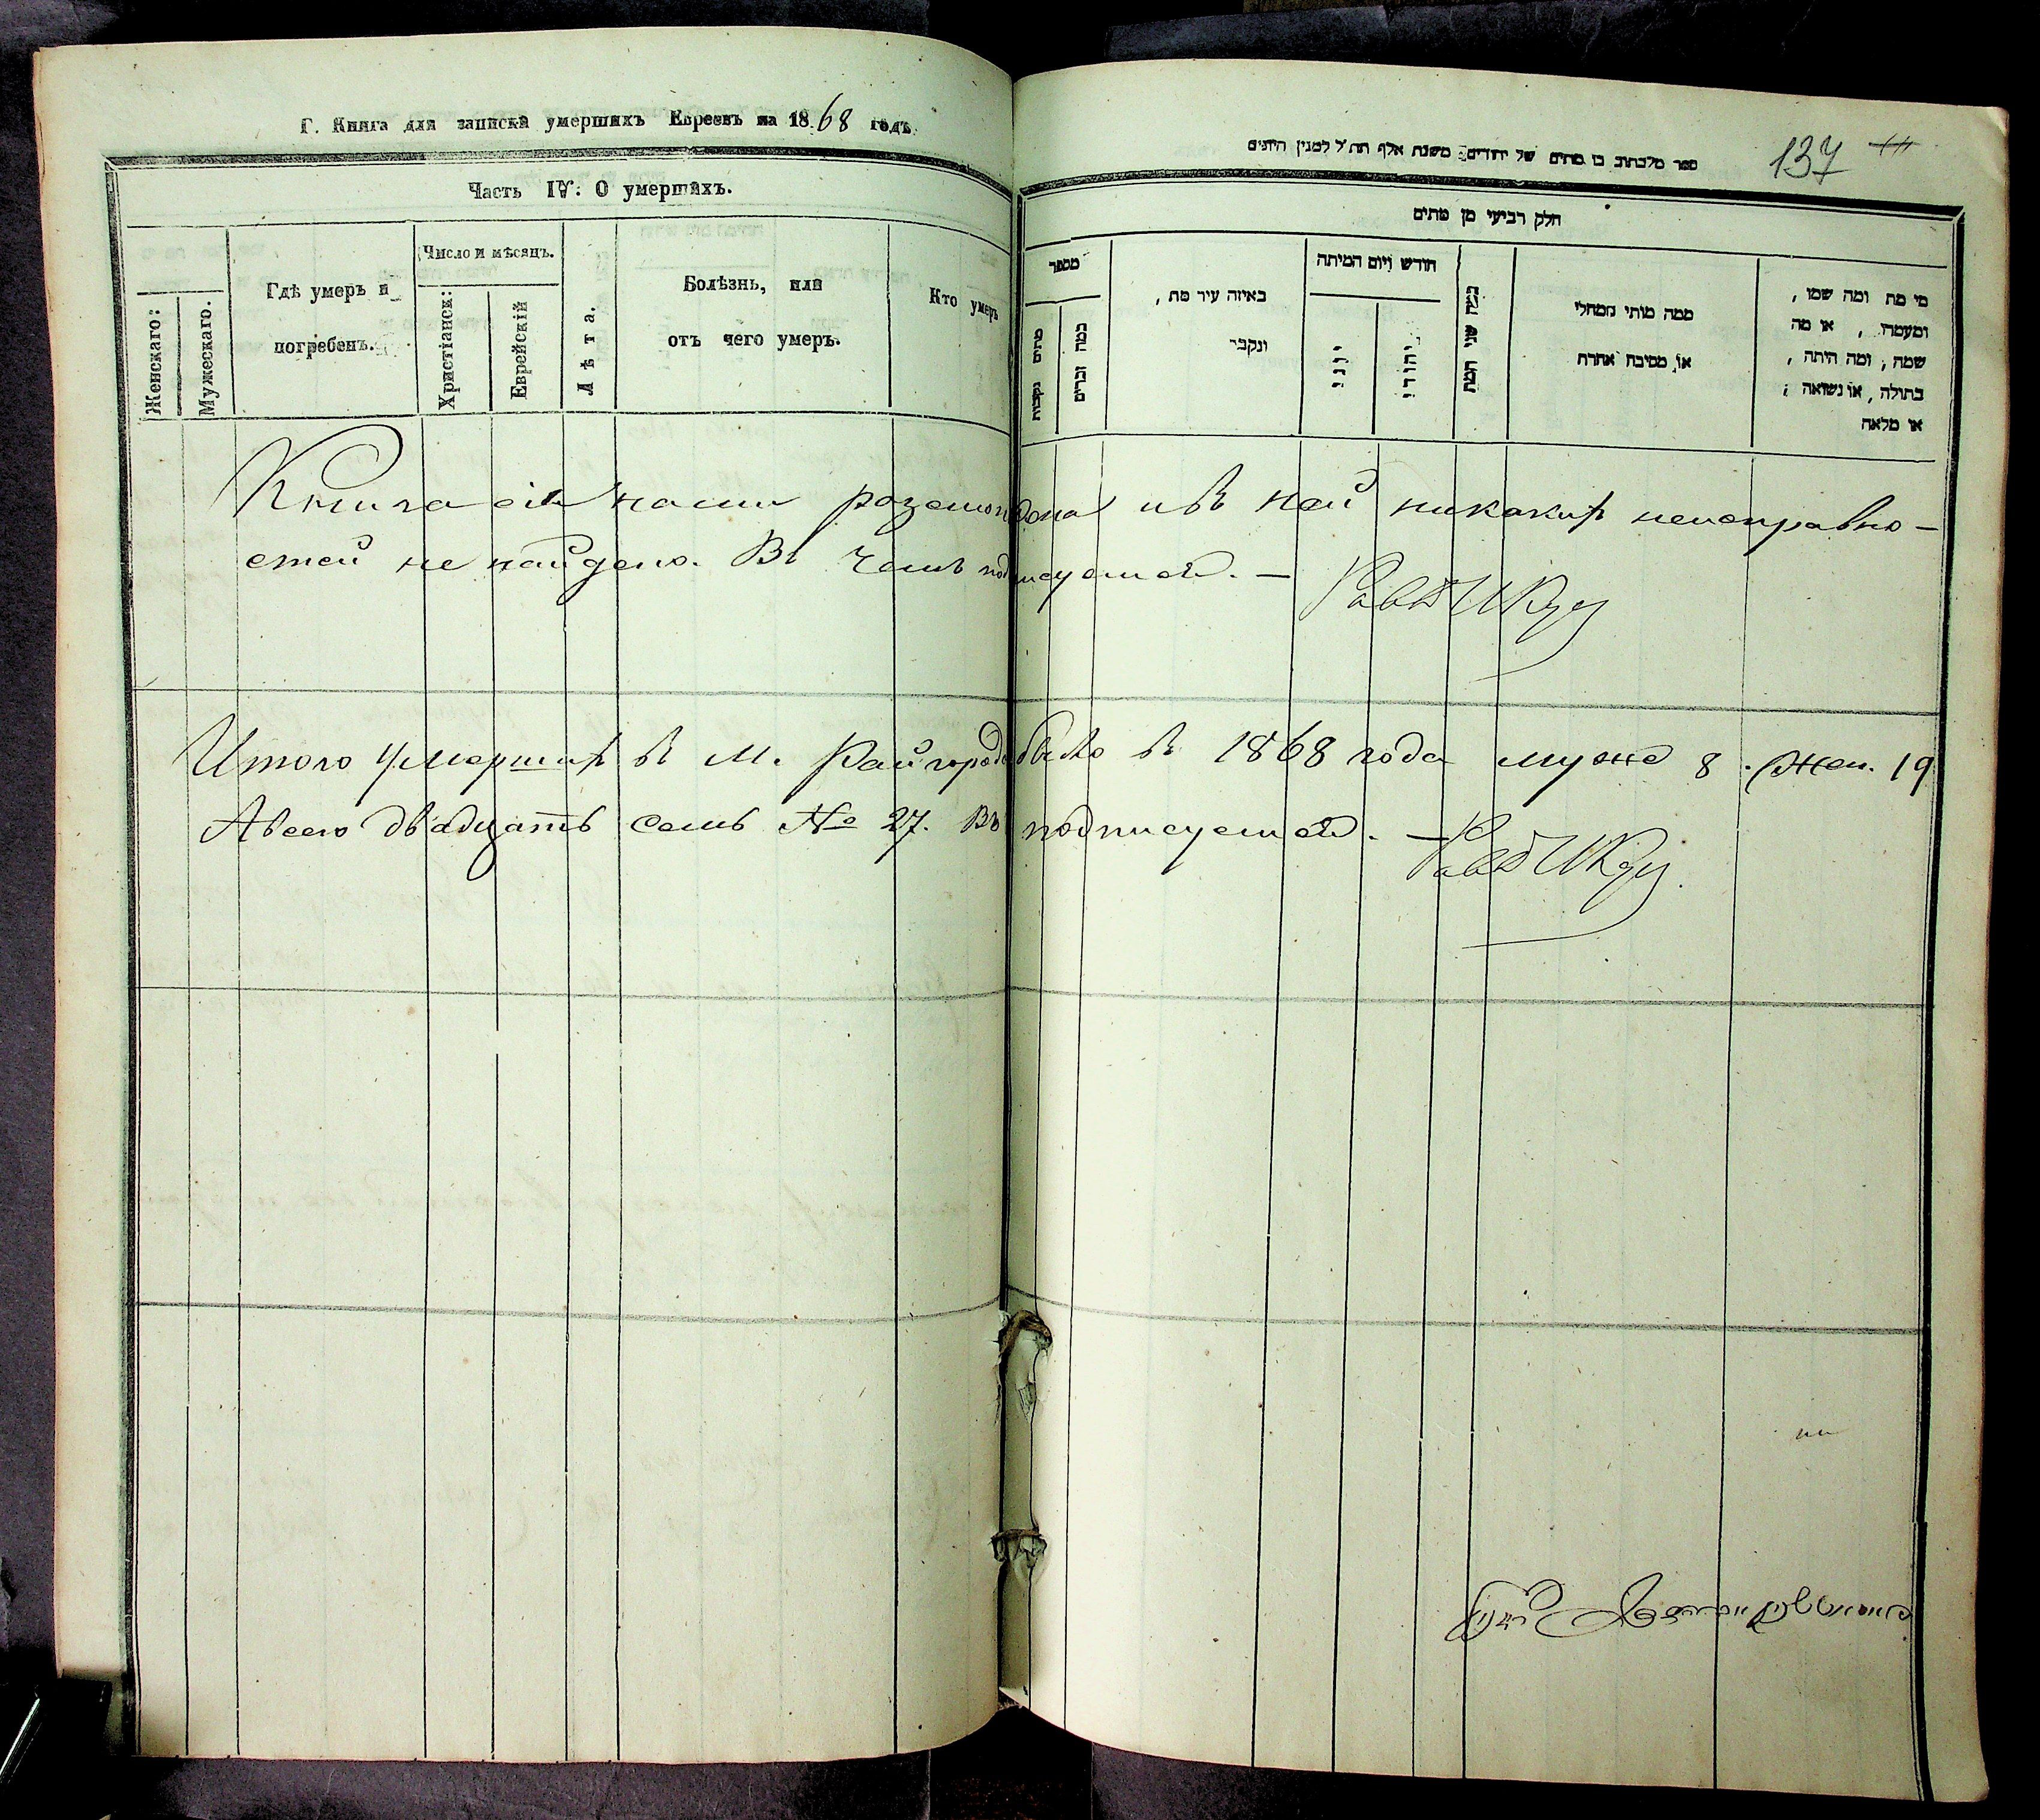 Г. Книга для записки умершихъ Евреевъ на 1868 годъ.
Часть IV: О умершихъ.
Женскаго:
Мужескаго.
Гдѣ умеръ и
погребенъ.
Число и мѣсяцъ.
Христіанск:
Еврейскій
Лѣта.
Болѣзнь, или
отъ чего умеръ.
Кто умеръ
137
ספר מלכתוב בו מתים של יהודים משנת אלף תת״ל למנין היונים
חלק רביעי מן מתים
מספר
מתים נקבות
כמה זכרים
באיזה עיר מת,
ונקבר
חודש ויום המיתה
יוני
יהודי
כמה שני המת
ממה מותו ממחלי
או מסיבה אחרת
מי מת ומה שמו,
ומעמדו, או מה
שמה, ומה היתה,
בתולה, או נשואה;
או מלאה
Книга сія нами разсмотрена и въ ней никакихъ неисправно-
стей не найдено. Въ чемъ подписуемся. —
Итого Умершихъ въ М. Райгородѣ было въ 1868 года муже 8. Жен. 19
А всего двадцать семь № 27. Въ подписуемся. —